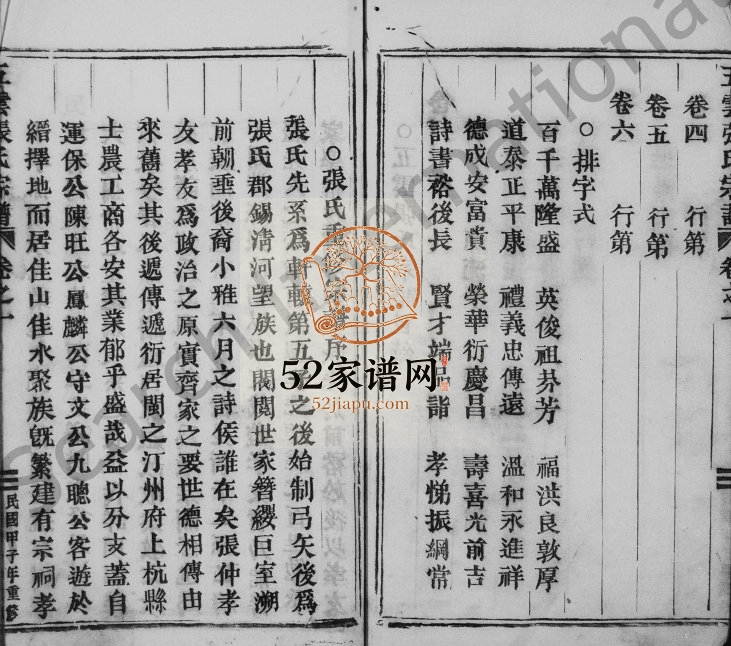 五雲張氏宗譜 卷之一
卷四 行第
卷五 行第
卷六 行第
○排字式
百千萬隆盛 英俊祖芬芳 福洪良敦厚
道泰正平康 禮義忠傳遠 溫和永進祥
德成安富貴 榮華衍慶昌 壽喜光前吉
詩書裕後長 賢才端品詣 孝悌振綱常
○張氏重修宗譜序
張氏先系爲軒轅第五子之後始制弓矢後爲
張氏郡錫淸河望族也閥閱世家簪纓巨室溯
前朝垂後裔小雅六月之詩侯誰在矣張仲孝
友孝友爲政治之原實齊家之要世德相傳由
來舊矣其後遞傳遞衍居閩之汀州府上杭縣
士農工商各安其業郁乎盛哉益以分支蓋自
運保公陳旺公鳳麟公守文公九聰公客遊於
縉擇地而居佳山佳水聚族旣繁建有宗祠孝
五雲張氏宗譜 卷之一
民國甲子年重修
Search International
52家谱网
52jiapu.com